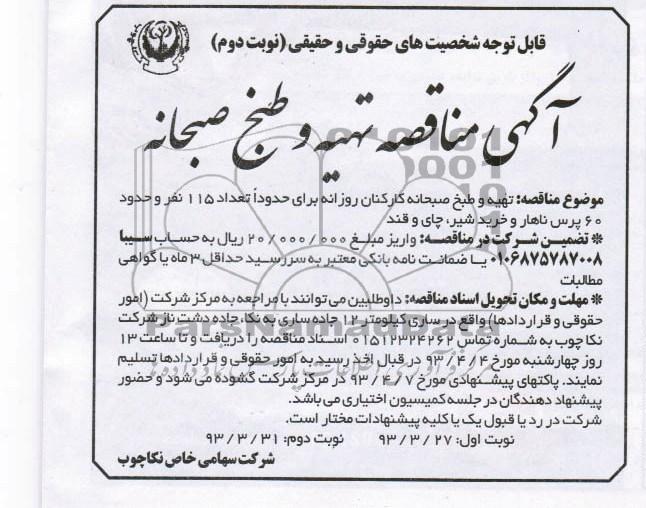 قابل توجه شخصیت های حقوقی و حقیقی (نوبت دوم)
آگهی مناقصه تهیه و طبخ صبحانه
موضوع مناقصه: تهیه و طبخ صبحانه کارکنان روزانه برای حدوداً تعداد ۱۱۵ نفر و حدود
۶۰ پرس ناهار و خرید شیر، چای و قند
* تضمین شرکت در مناقصه: واریز مبلغ ۲۰/۰۰۰/۰۰۰ ریال به حساب سیبا
۰۱۰۶۸۷۵۷۸۷۰۰۸ یا ضمانت نامه بانکی معتبر به سررسید حداقل ۳ ماه یا گواهی
مطالبات
* مهلت و مکان تحویل اسناد مناقصه: داوطلبین می توانند با مراجعه به مرکز شرکت (امور
حقوقی و قراردادها) واقع در ساری کیلومتر ۱۲ جاده ساری به نکا، جاده دشت ناز شرکت
نکا چوب به شماره تماس ۰۱۵۱۲۳۲۴۲۶۲ اسناد مناقصه را دریافت و تا ساعت ۱۳
روز چهارشنبه مورخ ۹۳/۴/۴ در قبال اخذ رسید به امور حقوقی و قراردادها تسلیم
نمایند. پاکتهای پیشنهادی مورخ ۹۳/۴/۷ در مرکز شرکت گشوده می شود و حضور
پیشنهاد دهندگان در جلسه کمیسیون اختیاری می باشد.
شرکت در رد یا قبول یک یا کلیه پیشنهادات مختار است.
نوبت اول: ۹۳/۳/۲۷ نوبت دوم: ۹۳/۳/۳۱
شرکت سهامی خاص نکاچوب
ParsNamadData